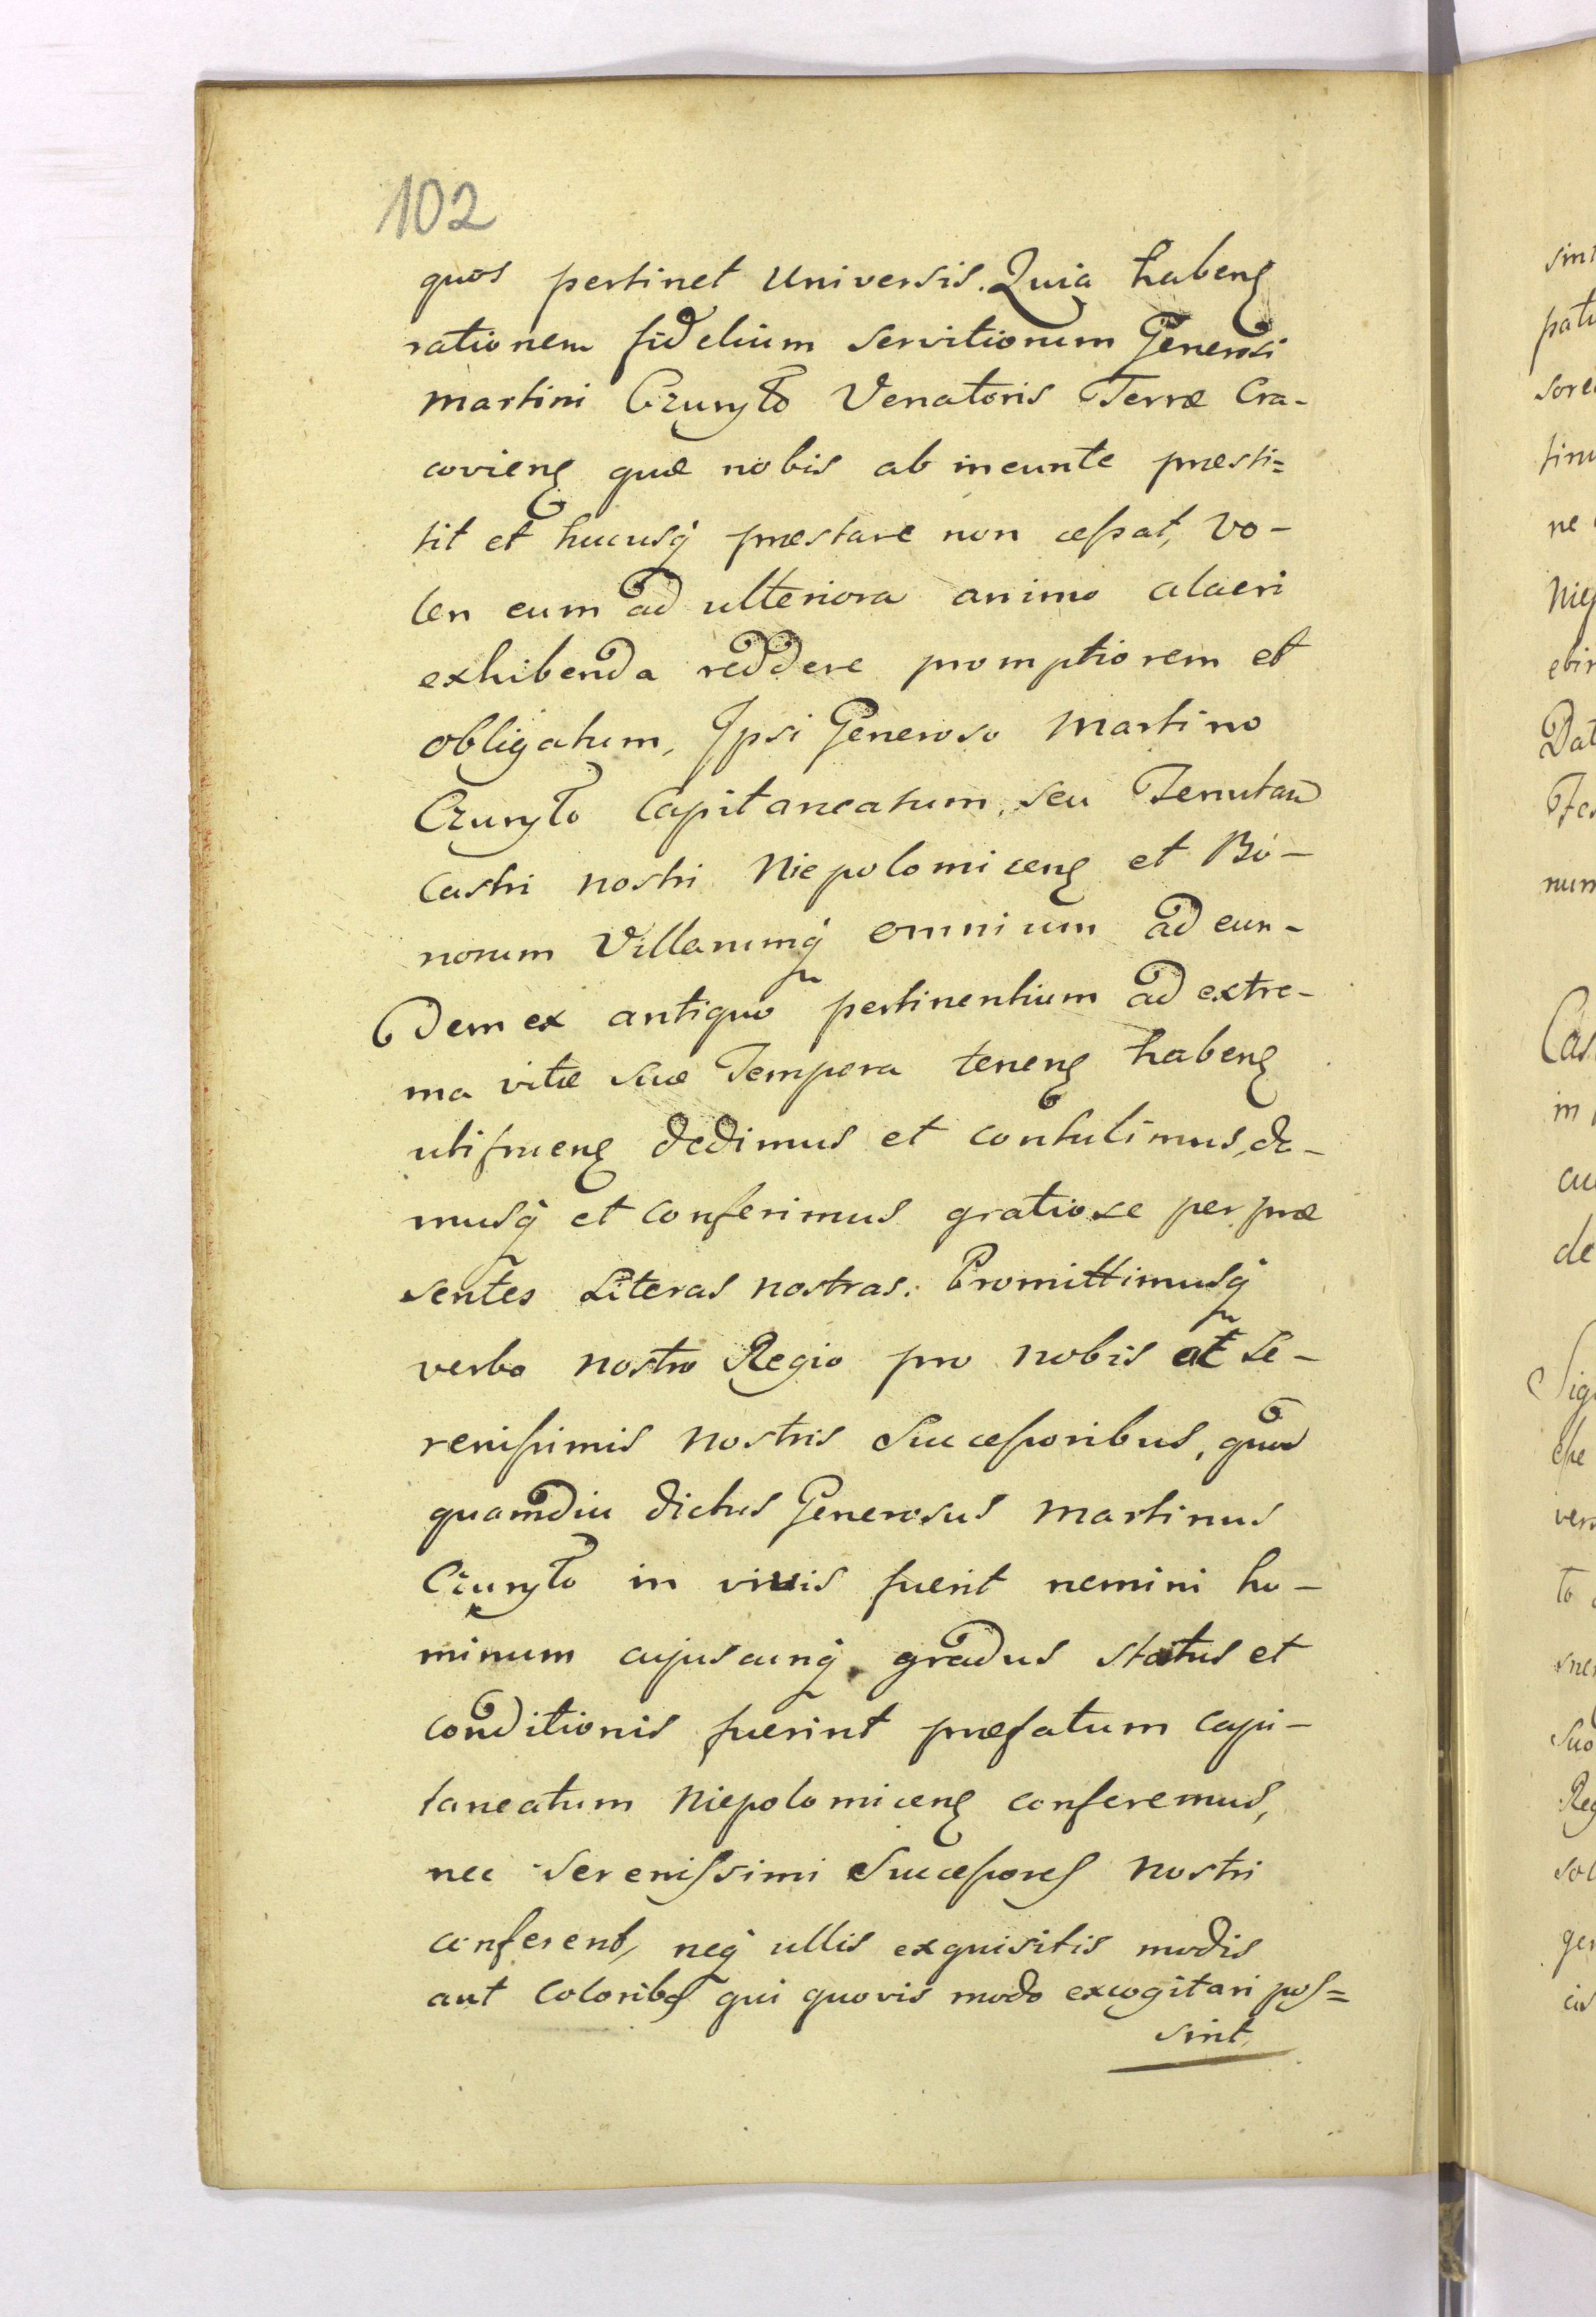 102
quos pertinet Universis. Quia habenς
rationem fidelium servitiorum Generosi
Martini Czuryło Venatoris Terræ Cra-
covienς quæ nobis ab ineunte præsti=
tit et hucusq́ præstare non cessat, vo-
len eum ad ulteriora animo alacri
exhibenda reddere promptiorem et
obligatum, Ipsi Generoso Martino
Czuryło Capitaneatum, seu Tenutam
Castri nostri Niepolomicenς et Bo-
norum Villarumq́ omnium ad eun-
dem ex antiquo pertinentium ad extre-
ma vitæ suæ Tempora tenenς habenς
utifruenς dedimus et contulimus, da-
musq́ et conferimus gratiose per præ
sentes Literas nostras. Promittimusq́
verbo nostro Regio pro nobis et Se-
renissimis nostris Successoribus, quod
quamdiu dictus Generosus Martinus
Czuryło in vivis fuerit nemini ho-
minum cujuscunq́ gradus status et
conditionis fuerint præfatum capi-
taneatum Niepolomicenς conferemus,
nec Serenissimi Successores nostri
conferent, neq́ ullis exquisitis modis
aut Coloribς qui quovis modo excogitari pos=
sint,
sint
patu
sore
tinu
ne
Niep
Dat
num
in
de
Sig
vers
to
suo
Reg
sol
ger